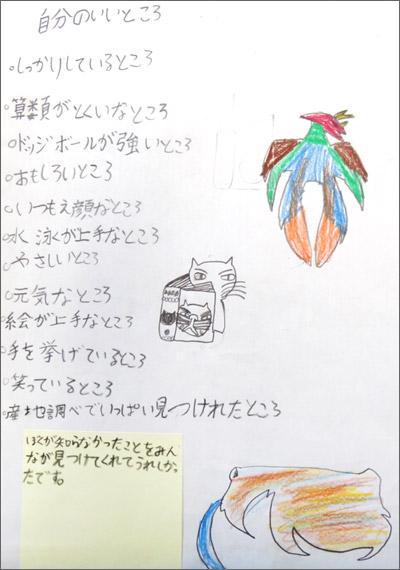 自分のいいところ
○しっかりしているところ
○算数がとくいなところ
○ドッジボールが強いところ
○おもしろいところ
○いつもえ顔なところ
○水泳が上手なところ
○やさしいところ
○元気なところ
○絵が上手なところ
○手を挙げているところ
○笑っているところ
○産地調べでいっぱい見つけれたところ
ぼくが知らなかったことをみん
なが見つけてくれてうれしかっ
たです。